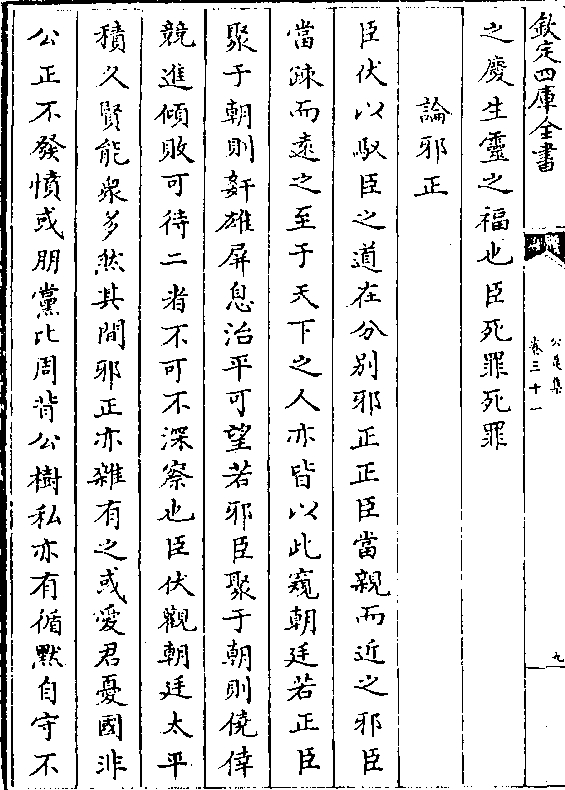 欽定四庫全書
公是集
卷三十一
九
之慶生靈之福也臣死罪死罪
論邪正
臣伏以馭臣之道在分别邪正正臣當親而近之邪臣
當疎而遠之至于天下之人亦皆以此窺朝廷若正臣
聚于朝則姧雄屏息治平可望若邪臣聚于朝則僥倖
競進傾敗可待二者不可不深察也臣伏觀朝廷太平
積久賢能衆多然其間邪正亦雜有之或愛君憂國非
公正不發憤或朋黨比周背公樹私亦有循默自守不